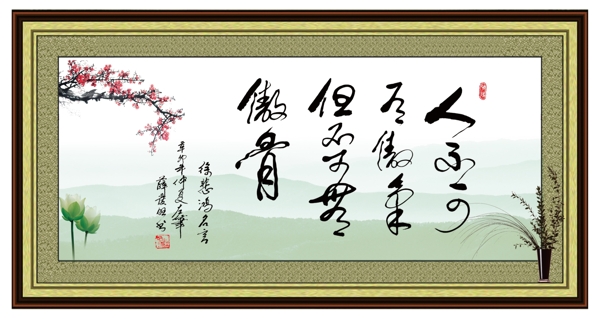 人不可
有傲气
但不可无
傲骨
徐悲鸿名言
辛卯年仲夏